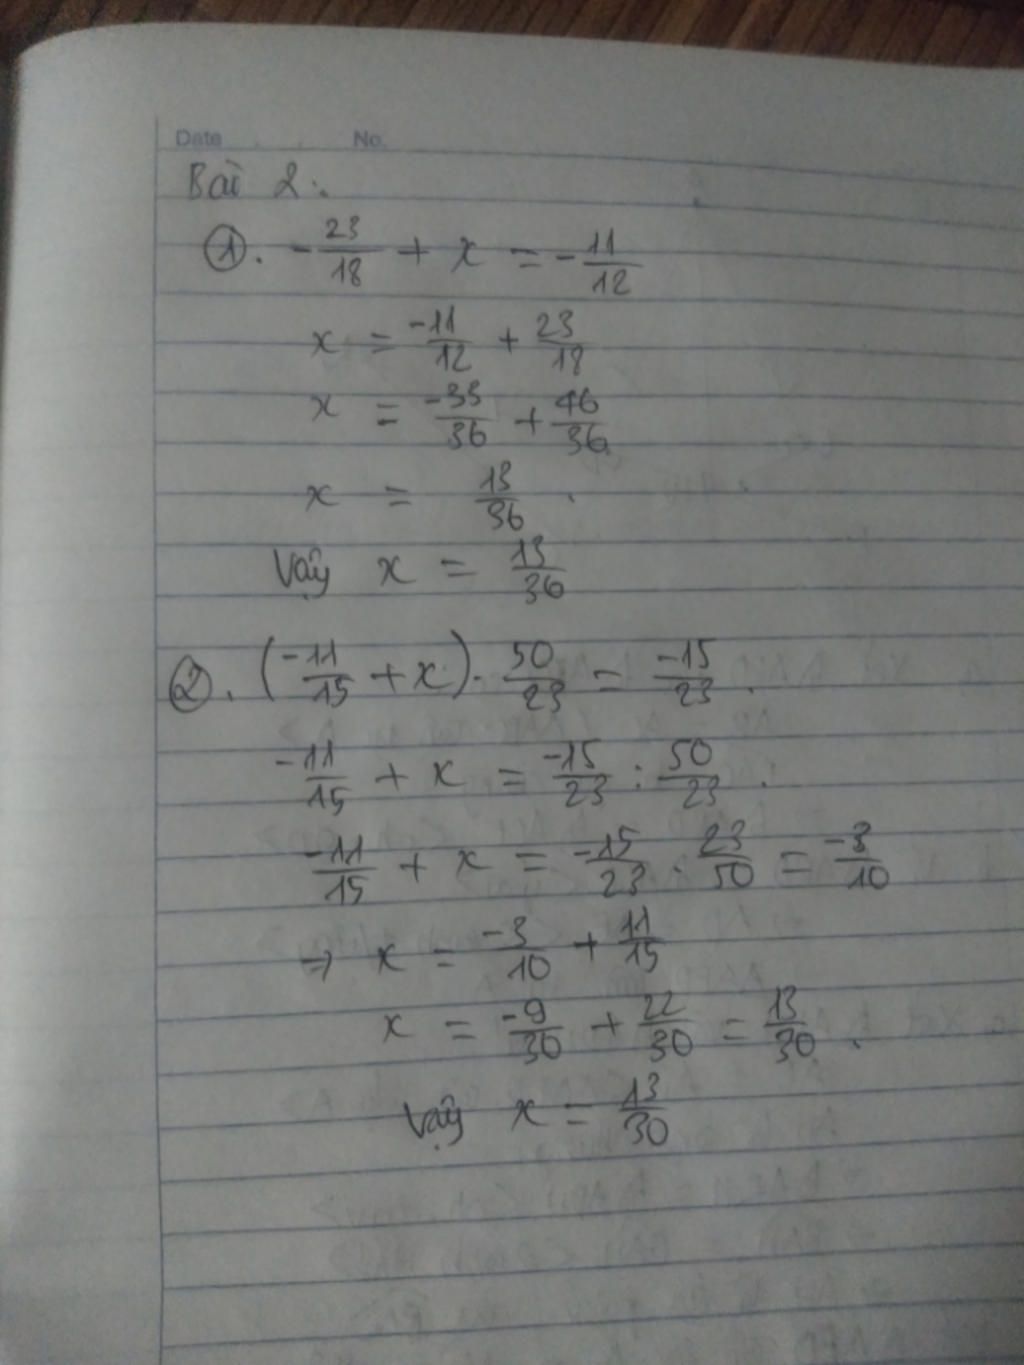 Date No.
Bài 2:
①. -23/18 + x = -11/12
x = -11/12 + 23/18
x = -33/36 + 46/36
x = 13/36.
Vậy x = 13/36
②. (-11/15 + x). 50/23 = -15/23.
-11/15 + x = -15/23 : 50/23.
-11/15 + x = -15/23 . 23/50 = -3/10
⇒ x = -3/10 + 11/15
x = -9/30 + 22/30 = 13/30.
Vậy x = 13/30